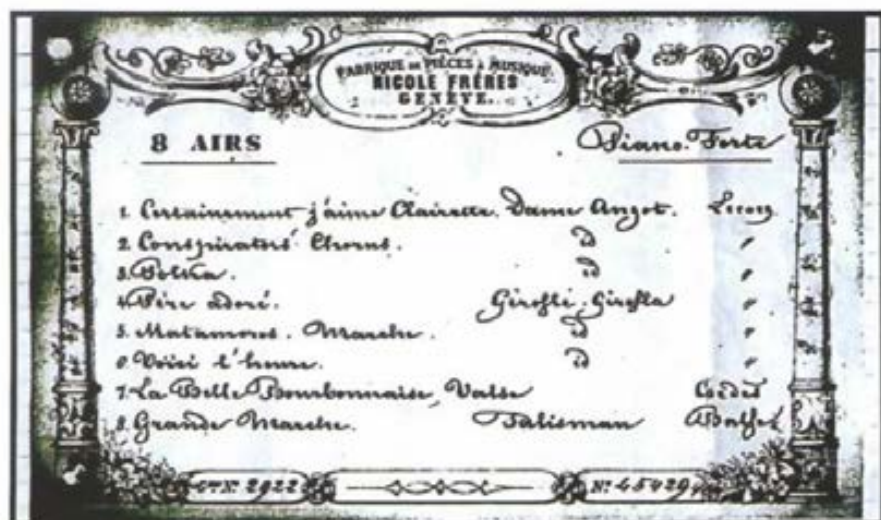 FABRIQUE DE PIÈCES À MUSIQUE
NICOLE FRÉRES
GENÈVE.
8 AIRS Piano-Forte
1. Certainement j'aime Clairette. Dame Angot. Lecocq
2. Conspirators' Chorus. id "
3. Polka. id "
4. Père adoré. Giroflé-Girofla "
5. Matamoros. Marche. id "
6. Voici l'heure. id "
7. La Belle Bourbonnaise, Valse Coèdes
8. Grande Marche. Talisman Balfe
Gme No. 2922 No. 45429